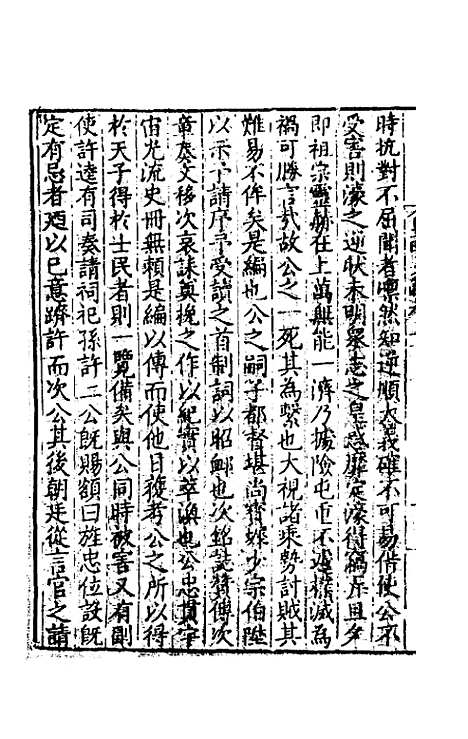 時抗對不屈聞者凛然知逆順大義確不可易借使公不
受害則濠之逆狀未明眾志之皇惑靡定濠得竊斥且夕
即祖宗靈赫在上萬無能一濟乃據險屯百不遂撲滅為
禍可勝言哉故公之一死其為繫也大視諸乘勢討賊其
難易不侔矣是編也公之嗣子都督堪尚寶墀少宗伯陞
以示予請序予受讀之首制詞以昭卹也次銘誌贊傳次
章奏文移次哀誄奠挽之作以紀實以萃渙也公忠貫宇
宙光流史冊無賴是編以傳而使他日獲考公之所以得
於天子得於士民者則一覽備矣與公同時被害又有副
使許逵有司奏請祠祀孫許二公既賜額曰旌忠位設既
定有忌者廼以已意躋許而次公其後朝廷從言官之請